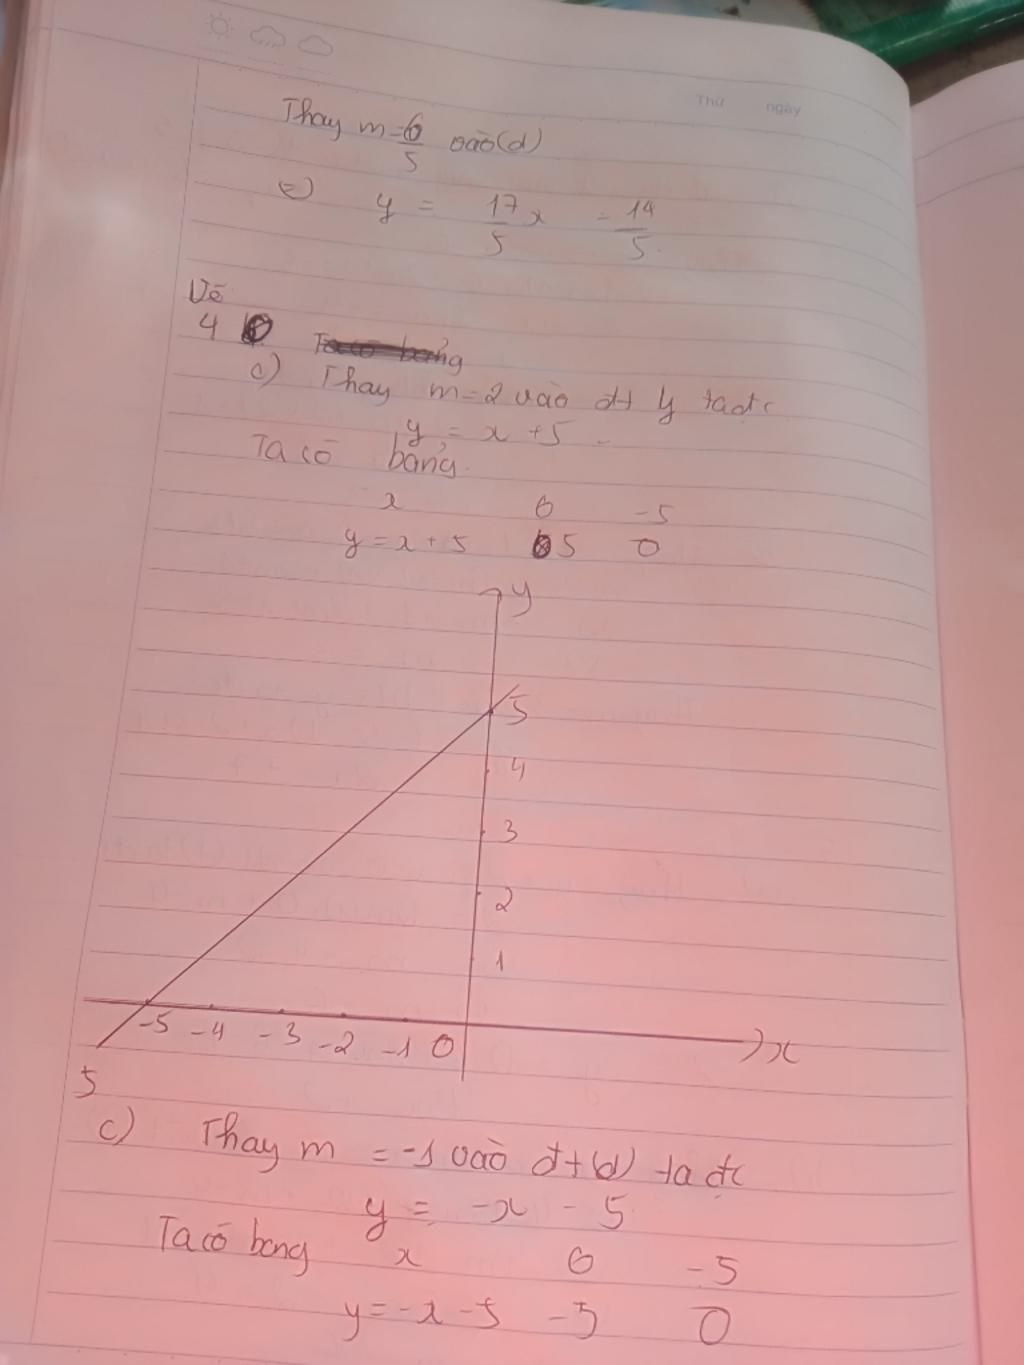 Thứ ngày
Thay m = 6/5 vào (d)
=) y = 17/5 x = 14/5
Vẽ
4
c) Thay m = 2 vào đt y ta đc
y = x + 5
Ta có bảng
x 0 -5
y = x + 5 5 0
y
5
4
3
2
1
-5 -4 -3 -2 -1 0 x
5
c) Thay m = -1 vào đt (d) ta đc
y = -x - 5
Ta có bang
x 0 -5
y = -x - 5 -5 0